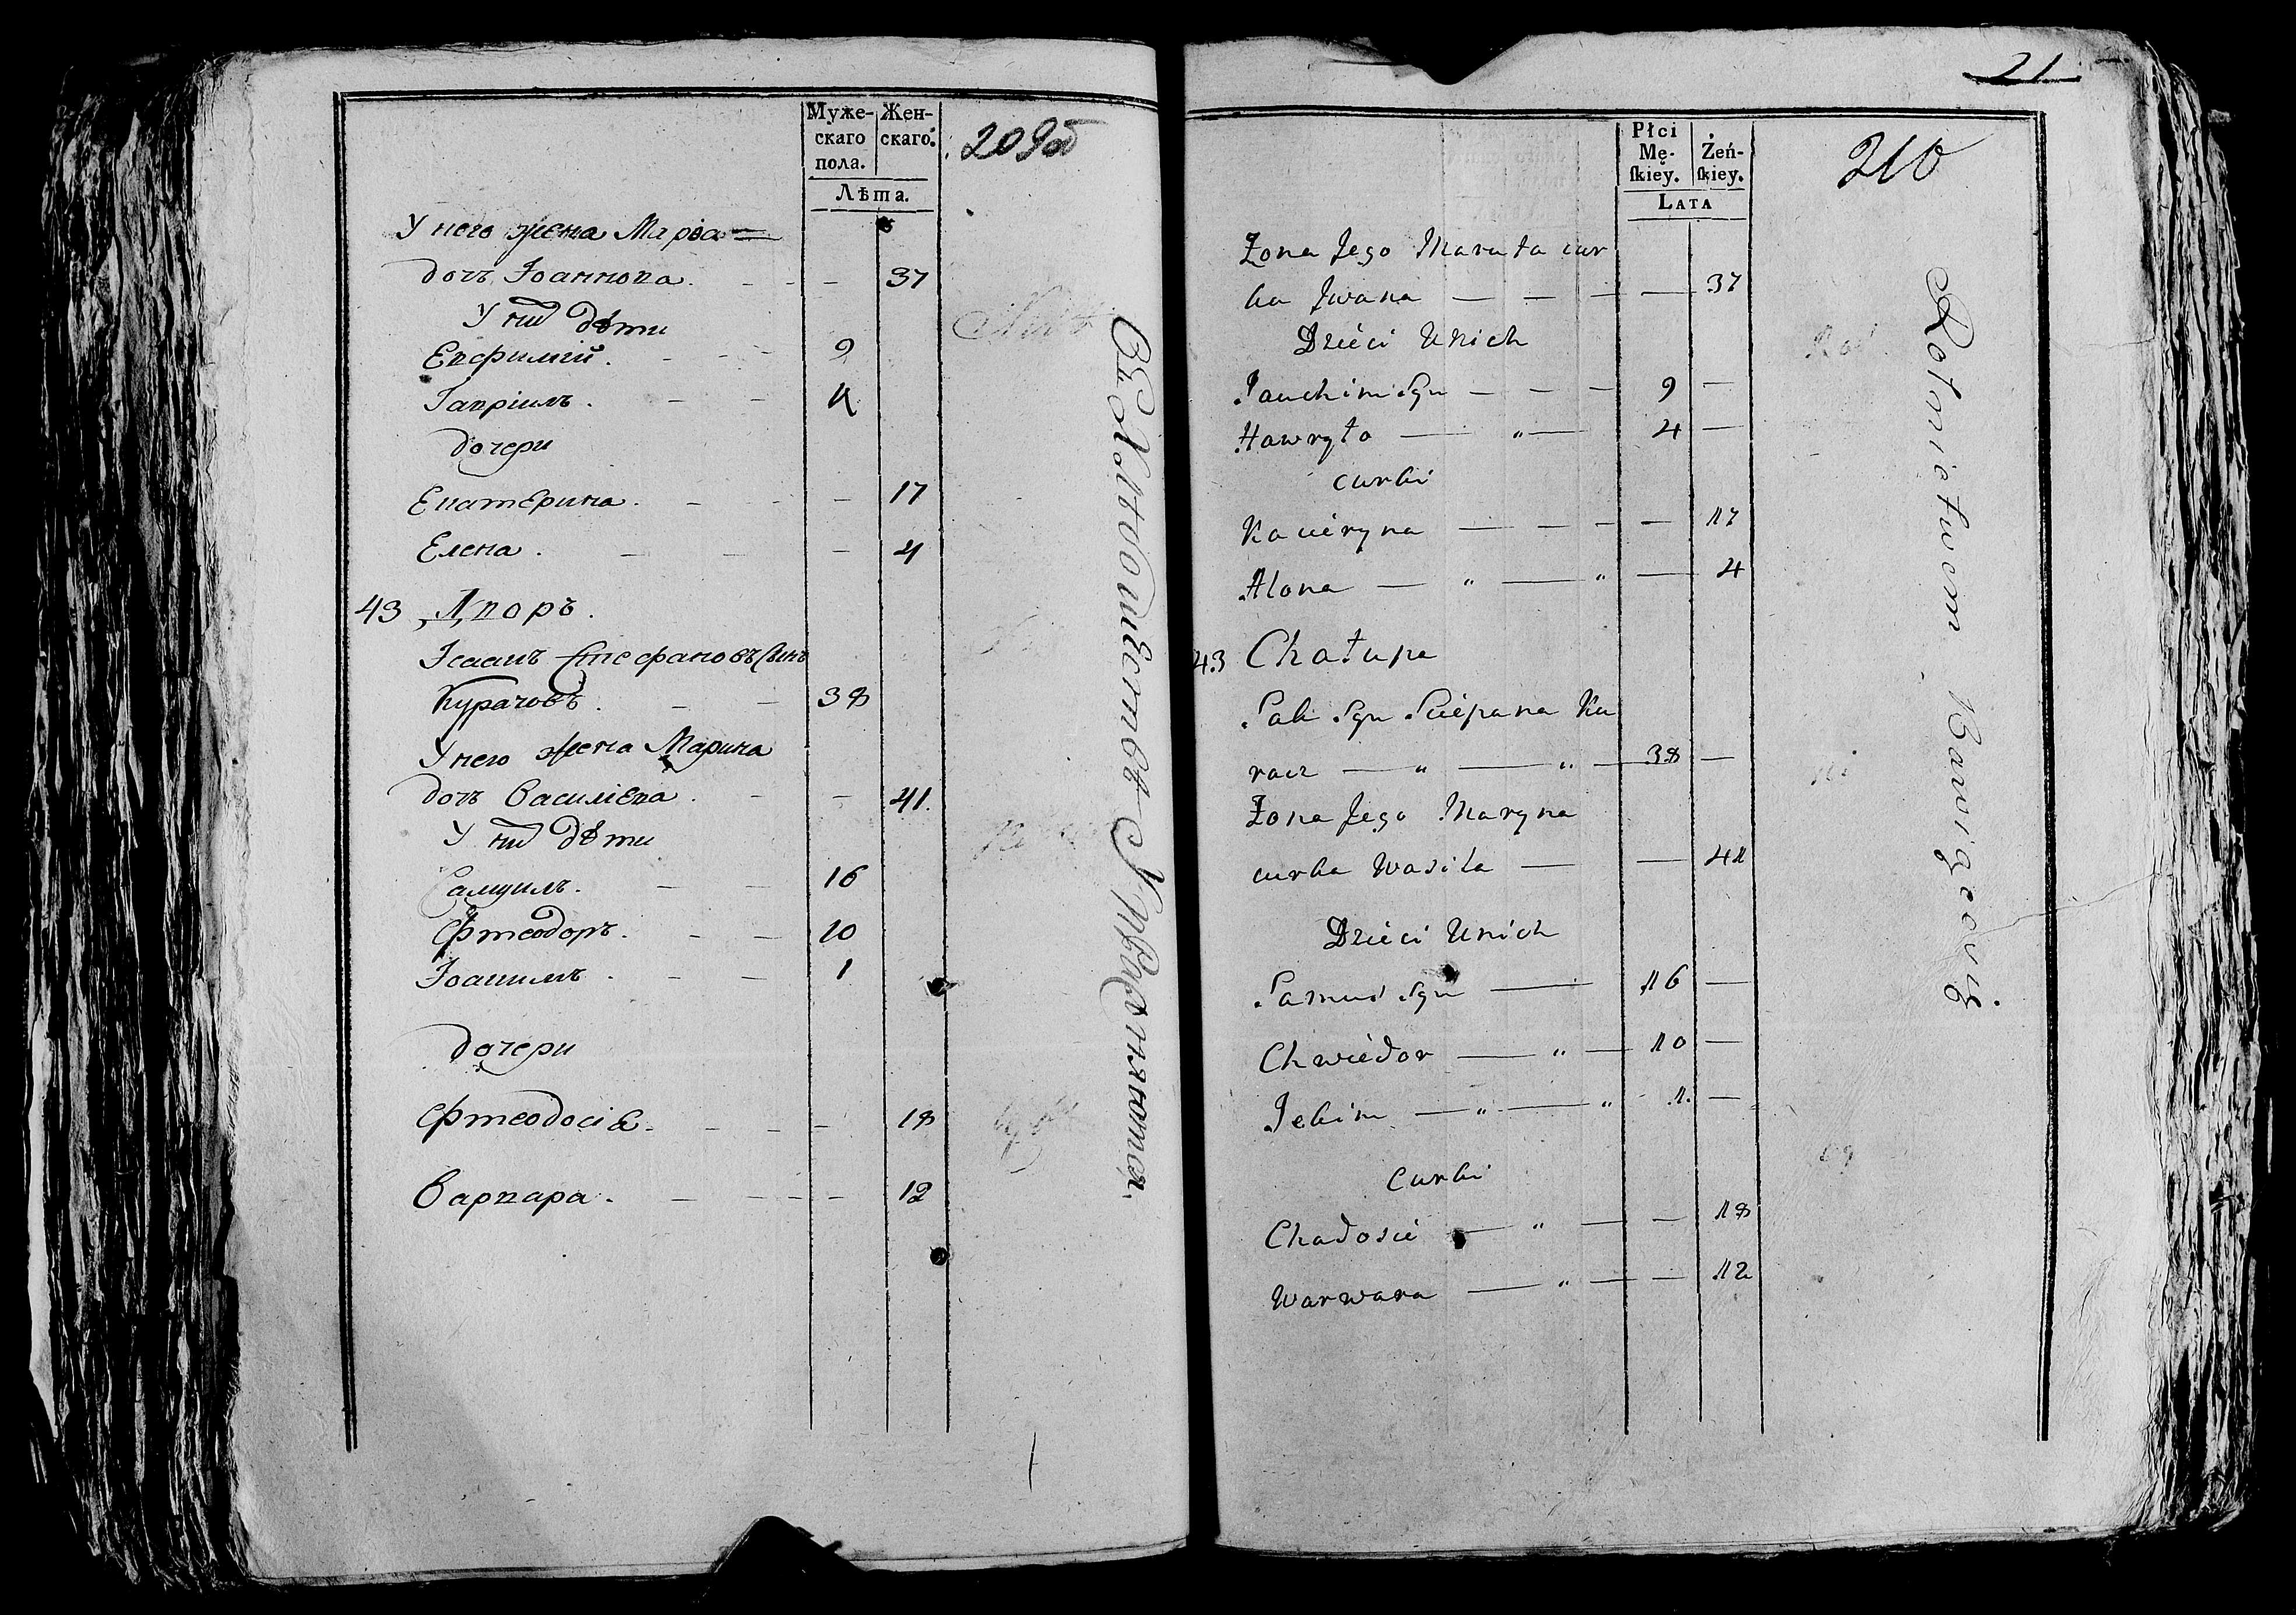 Муже-
скаго
пола.
Жен-
скаго.
Лѣта.
209об
У него жена Мариа=
дочь Іоаннова. 37
У них дѣти
Евфимий. 9
Гавріилъ. 4
дочери
Екатерина. 17
Елена. 4
43 Дворъ.
Исаакъ Стефановъ Сынъ
Курачовъ. 38
У него жена Марина
дочь Василіева. 41.
У них дѣти
Самуилъ. 16
Фтеодоръ. 10
Іоакимъ. 1
дочери
Фтеодосіа. 18
Варвара. 12
21
Płci
Mę-
ſkiey.
Żeń-
ſkiey.
LATA
210
Zona Jego Maruta cur
ka Jwana — — — — 37
Dzieci Unich
Jauchim Syn — — — 9 —
Hawryło — „ — 4 —
curki
Kacieryna — — — — 17
Alona — „ — „ — 4
43 Chałupa
Sak Syn Sciepana Ku
racz — „ — „ — 38 —
Zona Jego Maryna
curka Wasila — — 41
Dzieci Unich
Samuś Syn — 16 —
Chwiedor — „ — 10 —
Jekim — „ — „ 1. —
Curki
Chadosia — „ — — 18
Warwara — „ — — 12